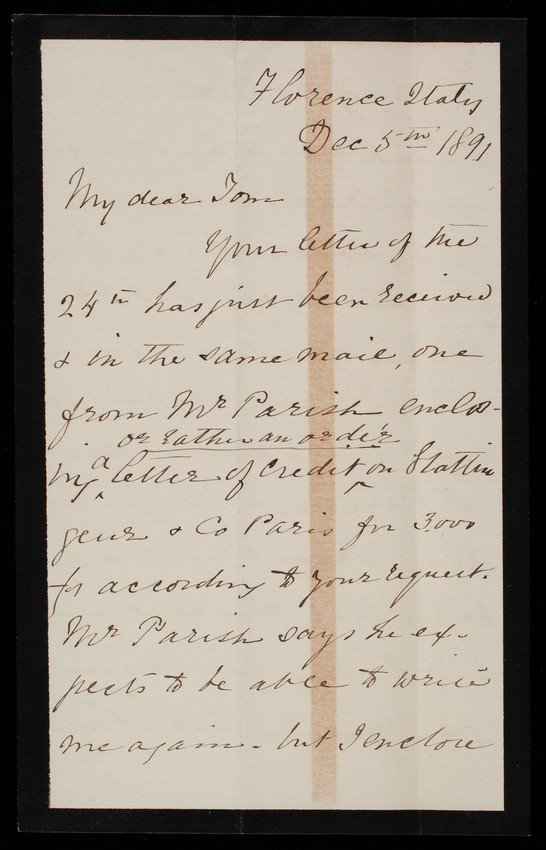 Florence Italy
Dec 5th 1891
My dear Tom
Your letter of the
24th has just been received
& in the same mail, one
from Mr Parish enclos-
or rather an order
ing a letter of credit on Hottin
geur & Co Paris for 3000
frs according to your request.
Mr Parish says he ex-
pects to be able to write
me again - but I enclose